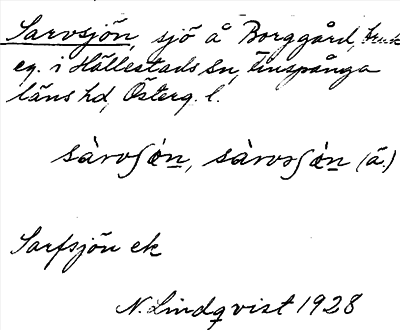 Sarvsjön, sjö å Borggård, bruk
eg. i Hällestads sn, Finspånga
läns hd, Österg. l.
sàrvʃɷ́n, sàrvsʃɷ́n (ä.)
Sarfsjön ek
N. Lindqvist 1928